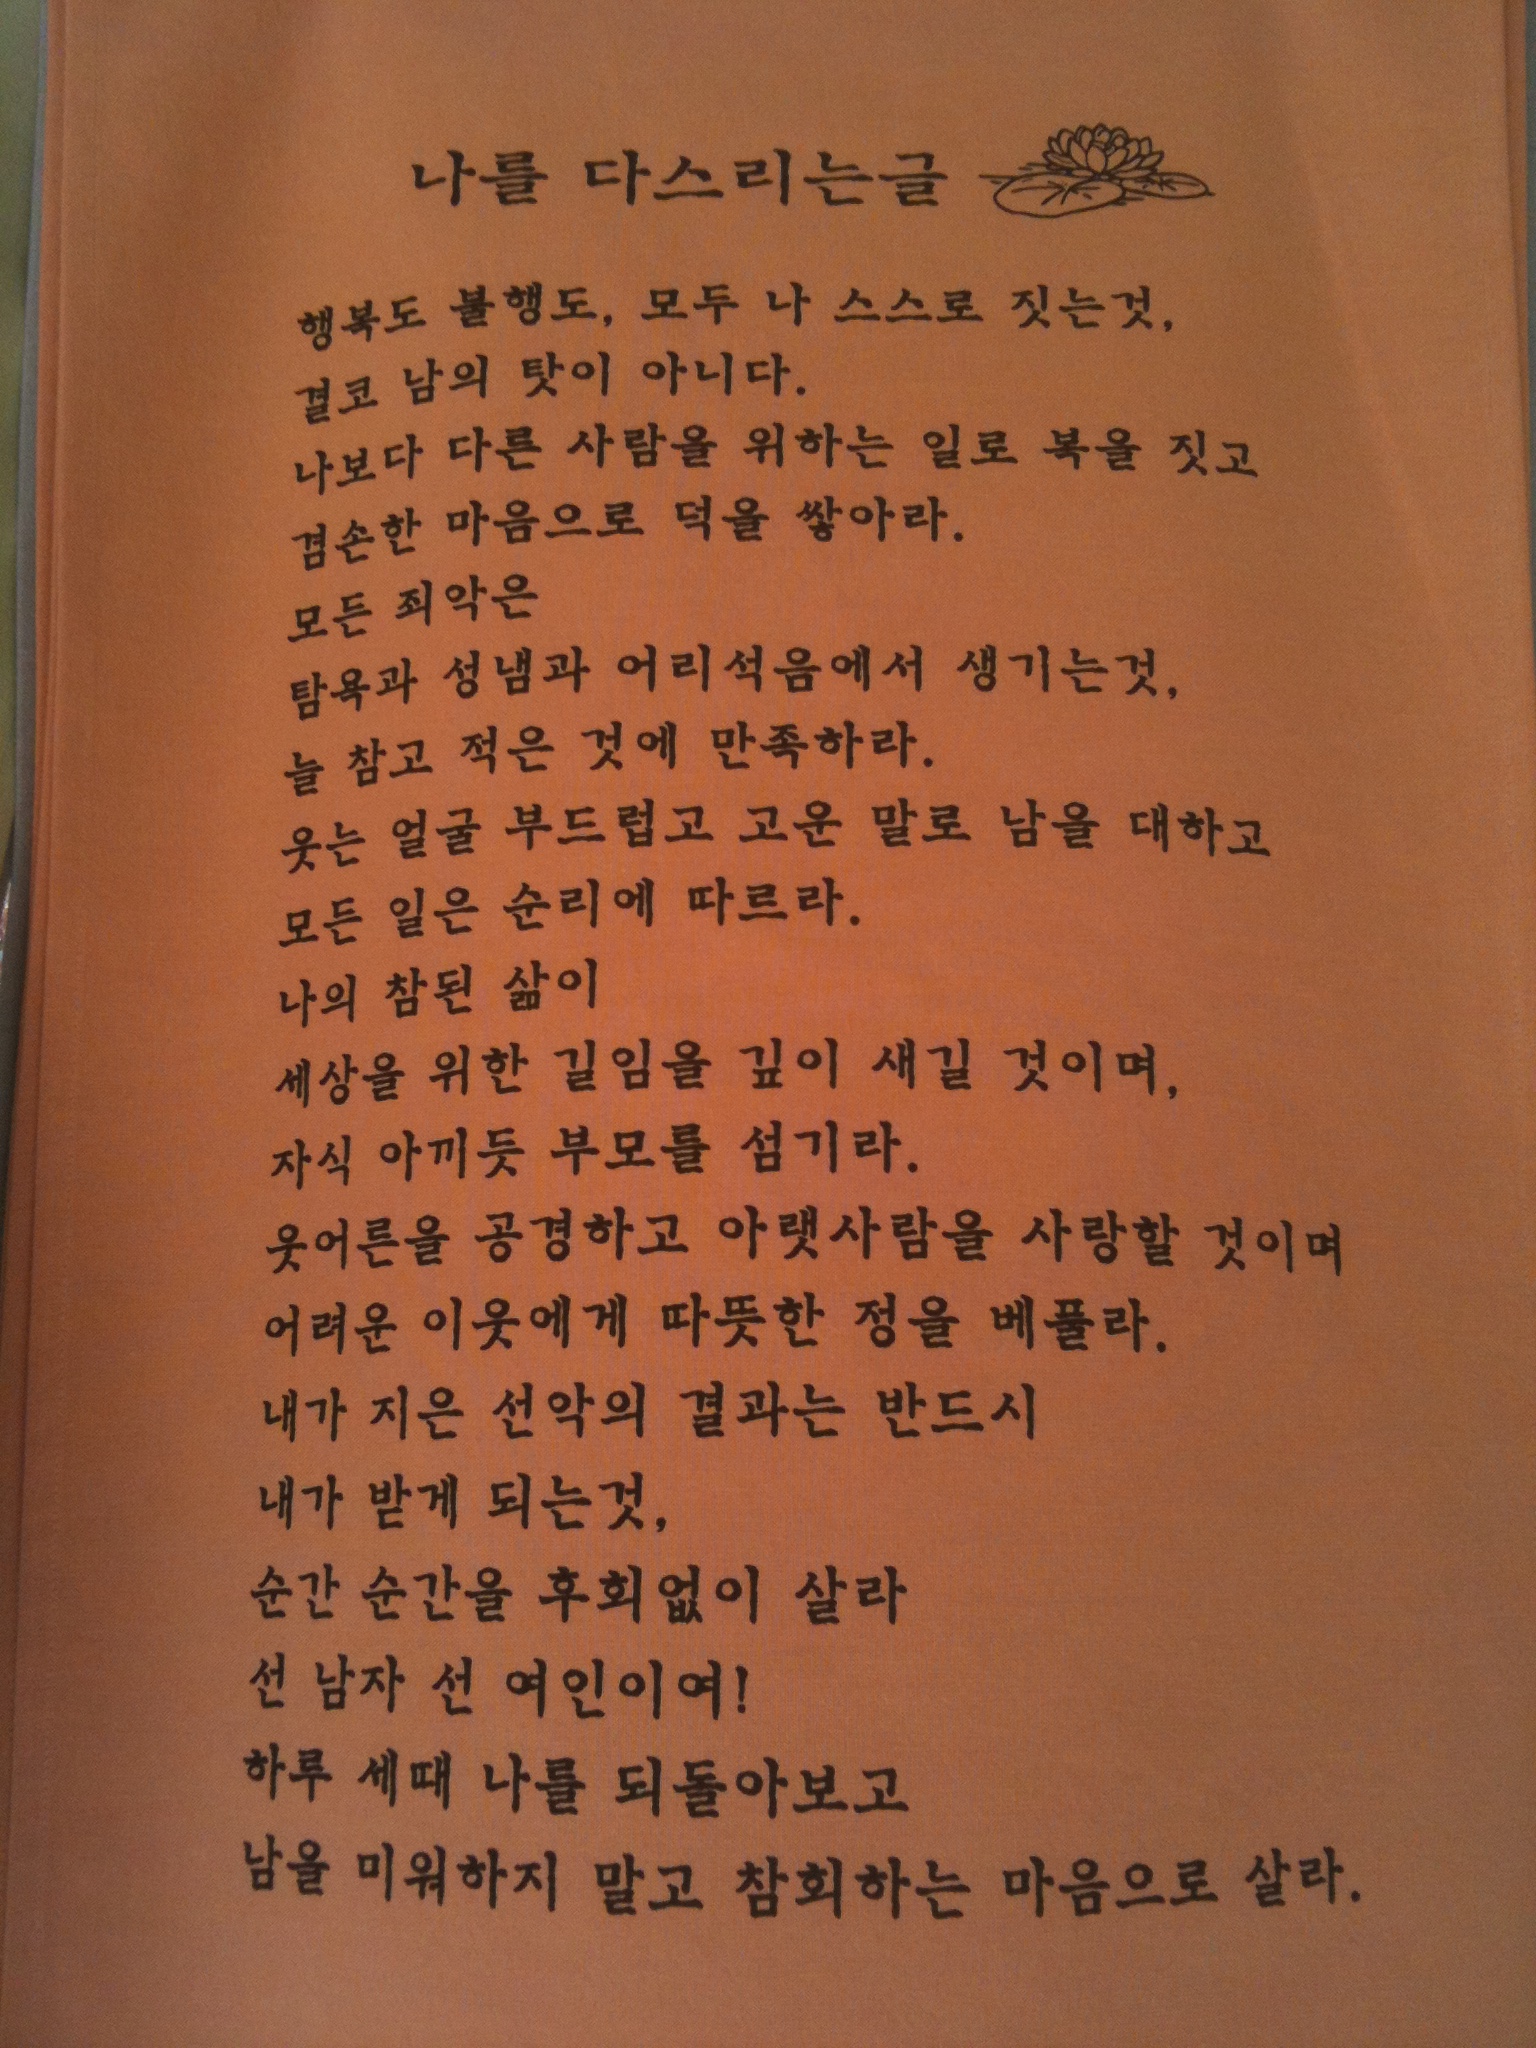 나를 다스리는글
행복도 불행도, 모두 나 스스로 짓는것,
결코 남의 탓이 아니다.
나보다 다른 사람을 위하는 일로 복을 짓고
겸손한 마음으로 덕을 쌓아라.
모든 죄악은
탐욕과 성냄과 어리석음에서 생기는것,
늘 참고 적은 것에 만족하라.
웃는 얼굴 부드럽고 고운 말로 남을 대하고
모든 일은 순리에 따르라.
나의 참된 삶이
세상을 위한 길임을 깊이 새길 것이며,
자식 아끼듯 부모를 섬기라.
웃어른을 공경하고 아랫사람을 사랑할 것이며
어려운 이웃에게 따뜻한 정을 베풀라.
내가 지은 선악의 결과는 반드시
내가 받게 되는것,
순간 순간을 후회없이 살라
선 남자 선 여인이여!
하루 세때 나를 되돌아보고
남을 미워하지 말고 참회하는 마음으로 살라.